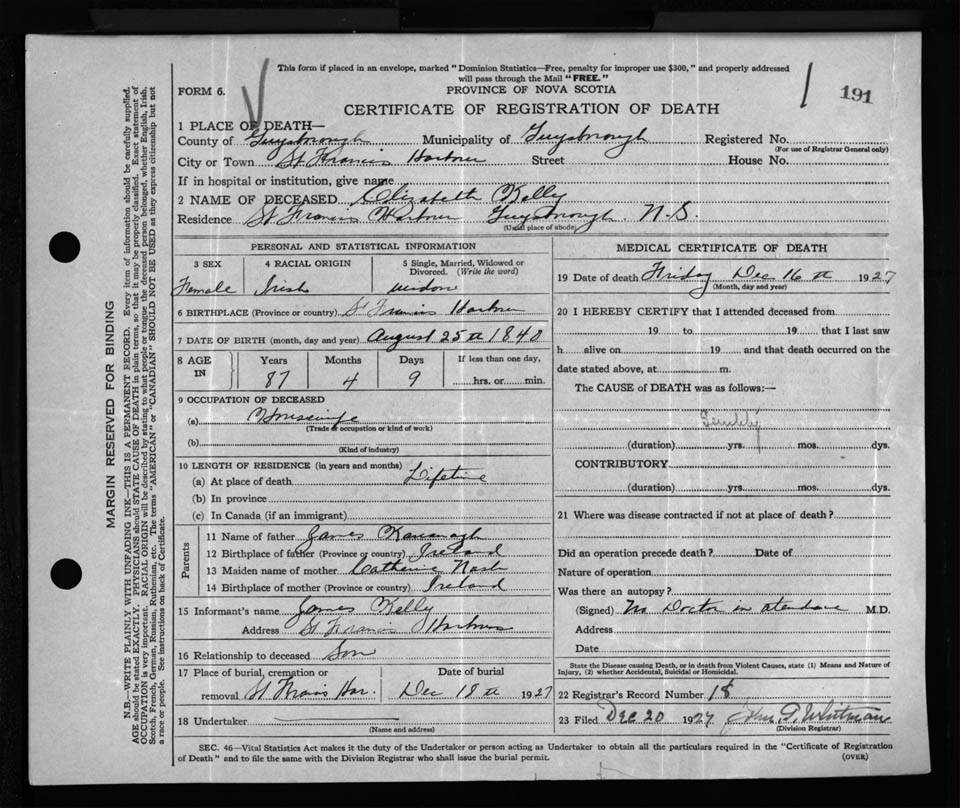 This form if placed in an envelope, marked "Dominion Statistics—Free, penalty for improper use $300," and properly addressed
will pass through the Mail "FREE."
FORM 6.
PROVINCE OF NOVA SCOTIA
191
CERTIFICATE OF REGISTRATION OF DEATH
1 PLACE OF DEATH—
County of Guysborough Municipality of Guysborough Registered No.
(For use of Registrar General only)
City or Town St Francis Harbour Street House No.
If in hospital or institution, give name
2 NAME OF DECEASED Elizabeth Kelly
Residence St Francis Harbour Guysborough N.S.
(Usual place of abode)
PERSONAL AND STATISTICAL INFORMATION
3 SEX 4 RACIAL ORIGIN 5 Single, Married, Widowed or
Divorced. (Write the word)
Female Irish widow
6 BIRTHPLACE (Province or country) St Francis Harbour
7 DATE OF BIRTH (month, day and year) August 25th 1840
8 AGE IN Years Months Days If less than one day,
87 4 9 hrs. or min.
9 OCCUPATION OF DECEASED
(a) Housewife
(Trade or occupation or kind of work)
(b)
(Kind of industry)
10 LENGTH OF RESIDENCE (in years and months)
(a) At place of death Lifetime
(b) In province
(c) In Canada (if an immigrant)
Parents
11 Name of father James Kavanagh
12 Birthplace of father (Province or country) Ireland
13 Maiden name of mother Catherine Nash
14 Birthplace of mother (Province or country) Ireland
15 Informant's name James Kelly
Address St Francis Harbour
16 Relationship to deceased Son
17 Place of burial, cremation or Date of burial
removal St Frances Har. Dec 18th 1927
18 Undertaker
(Name and address)
MEDICAL CERTIFICATE OF DEATH
19 Date of death Friday Dec 16th 1927
(Month, day and year)
20 I HEREBY CERTIFY that I attended deceased from
19 to 19 that I last saw
h alive on 19 and that death occurred on the
date stated above, at m.
The CAUSE of DEATH was as follows:—
(duration) yrs. mos. dys.
CONTRIBUTORY
(duration) yrs. mos. dys.
21 Where was disease contracted if not at place of death?
Did an operation precede death? Date of
Nature of operation
Was there an autopsy?
(Signed) No Doctor in attendance M.D.
Address
Date
State the Disease causing Death, or in death from Violent Causes, state (1) Means and Nature of
Injury, (2) whether Accidental, Suicidal or Homicidal.
22 Registrar's Record Number 18
23 Filed Dec 20 1927 John G. Whitman
(Division Registrar)
SEC. 46—Vital Statistics Act makes it the duty of the Undertaker or person acting as Undertaker to obtain all the particulars required in the "Certificate of Registration
of Death" and to file the same with the Division Registrar who shall issue the burial permit.
(OVER)
MARGIN RESERVED FOR BINDING
N.B.—WRITE PLAINLY WITH UNFADING INK—THIS IS A PERMANENT RECORD. Every item of information should be carefully supplied.
AGE should be stated EXACTLY. PHYSICIANS should STATE CAUSE OF DEATH in plain terms, so that it may be properly classified. Exact statement of
OCCUPATION is very important. RACIAL ORIGIN will be described by stating to what people or tongue the deceased person belonged, whether English, Irish,
Scotch, French, German, Russian, Ruthenian, etc. The terms "AMERICAN" or "CANADIAN" SHOULD NOT BE USED as they express citizenship but not
a race or people. See instructions on back of Certificate.